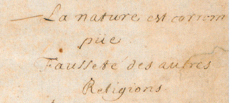 La nature est corrom
püe
Fausseté des autres
Religions